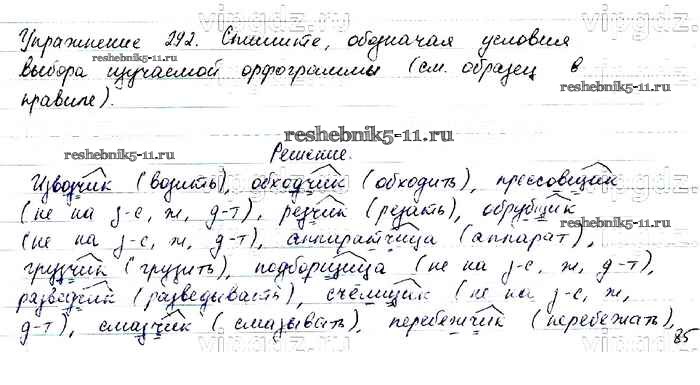 Упражнение 292. Спишите, обозначая условия
выбора изучаемой орфограммы (см. образец в
правиле).
reshebnik5-11.ru
Решение.
Извозчик (возить), обходчик (обходить), прессовщик
(не на з-с, ж, д-т), резчик (резать), обрубщик
(не на з-с, ж, д-т), аппаратчица (аппарат),
грузчик (грузить), подборщица (не на з-с, ж, д-т),
разведчик (разведывать), счёмщик (не на з-с, ж,
д-т), смазчик (смазывать), перебежчик (перебежать),
85